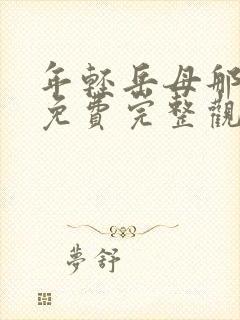 年輕岳母那
免費完整觀
夢舒